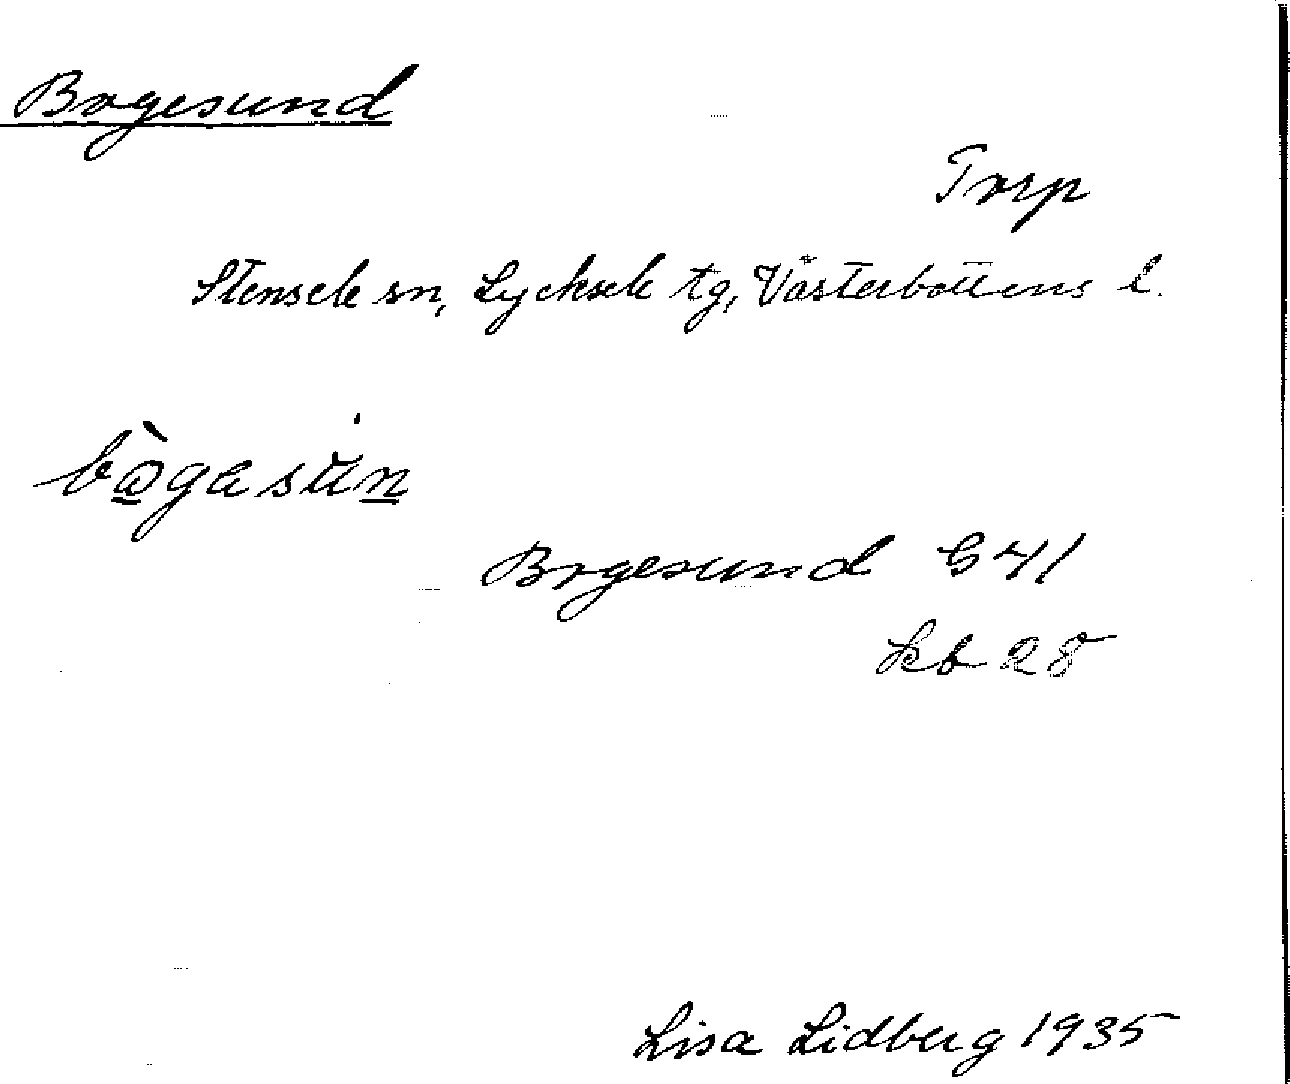 Bogesund
Torp
Stensele sn, Lycksele tg, Västerbottens l.
bògasun
Bogesund G 41
kb 28
Lisa Lidberg 1935